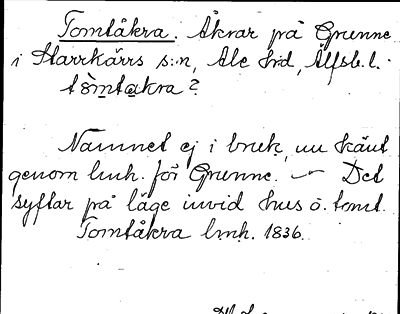 Tomtåkra. Åkrar på Grunne
i Starrkärrs s:n, Ale hd, Älfsb. l.
tòmtakra?
Namnet ej i bruk, nu känt
genom lmh. för Grunne. — Det
syftar på läge invid hus o. tomt.
Tomtåkra lmh. 1836.